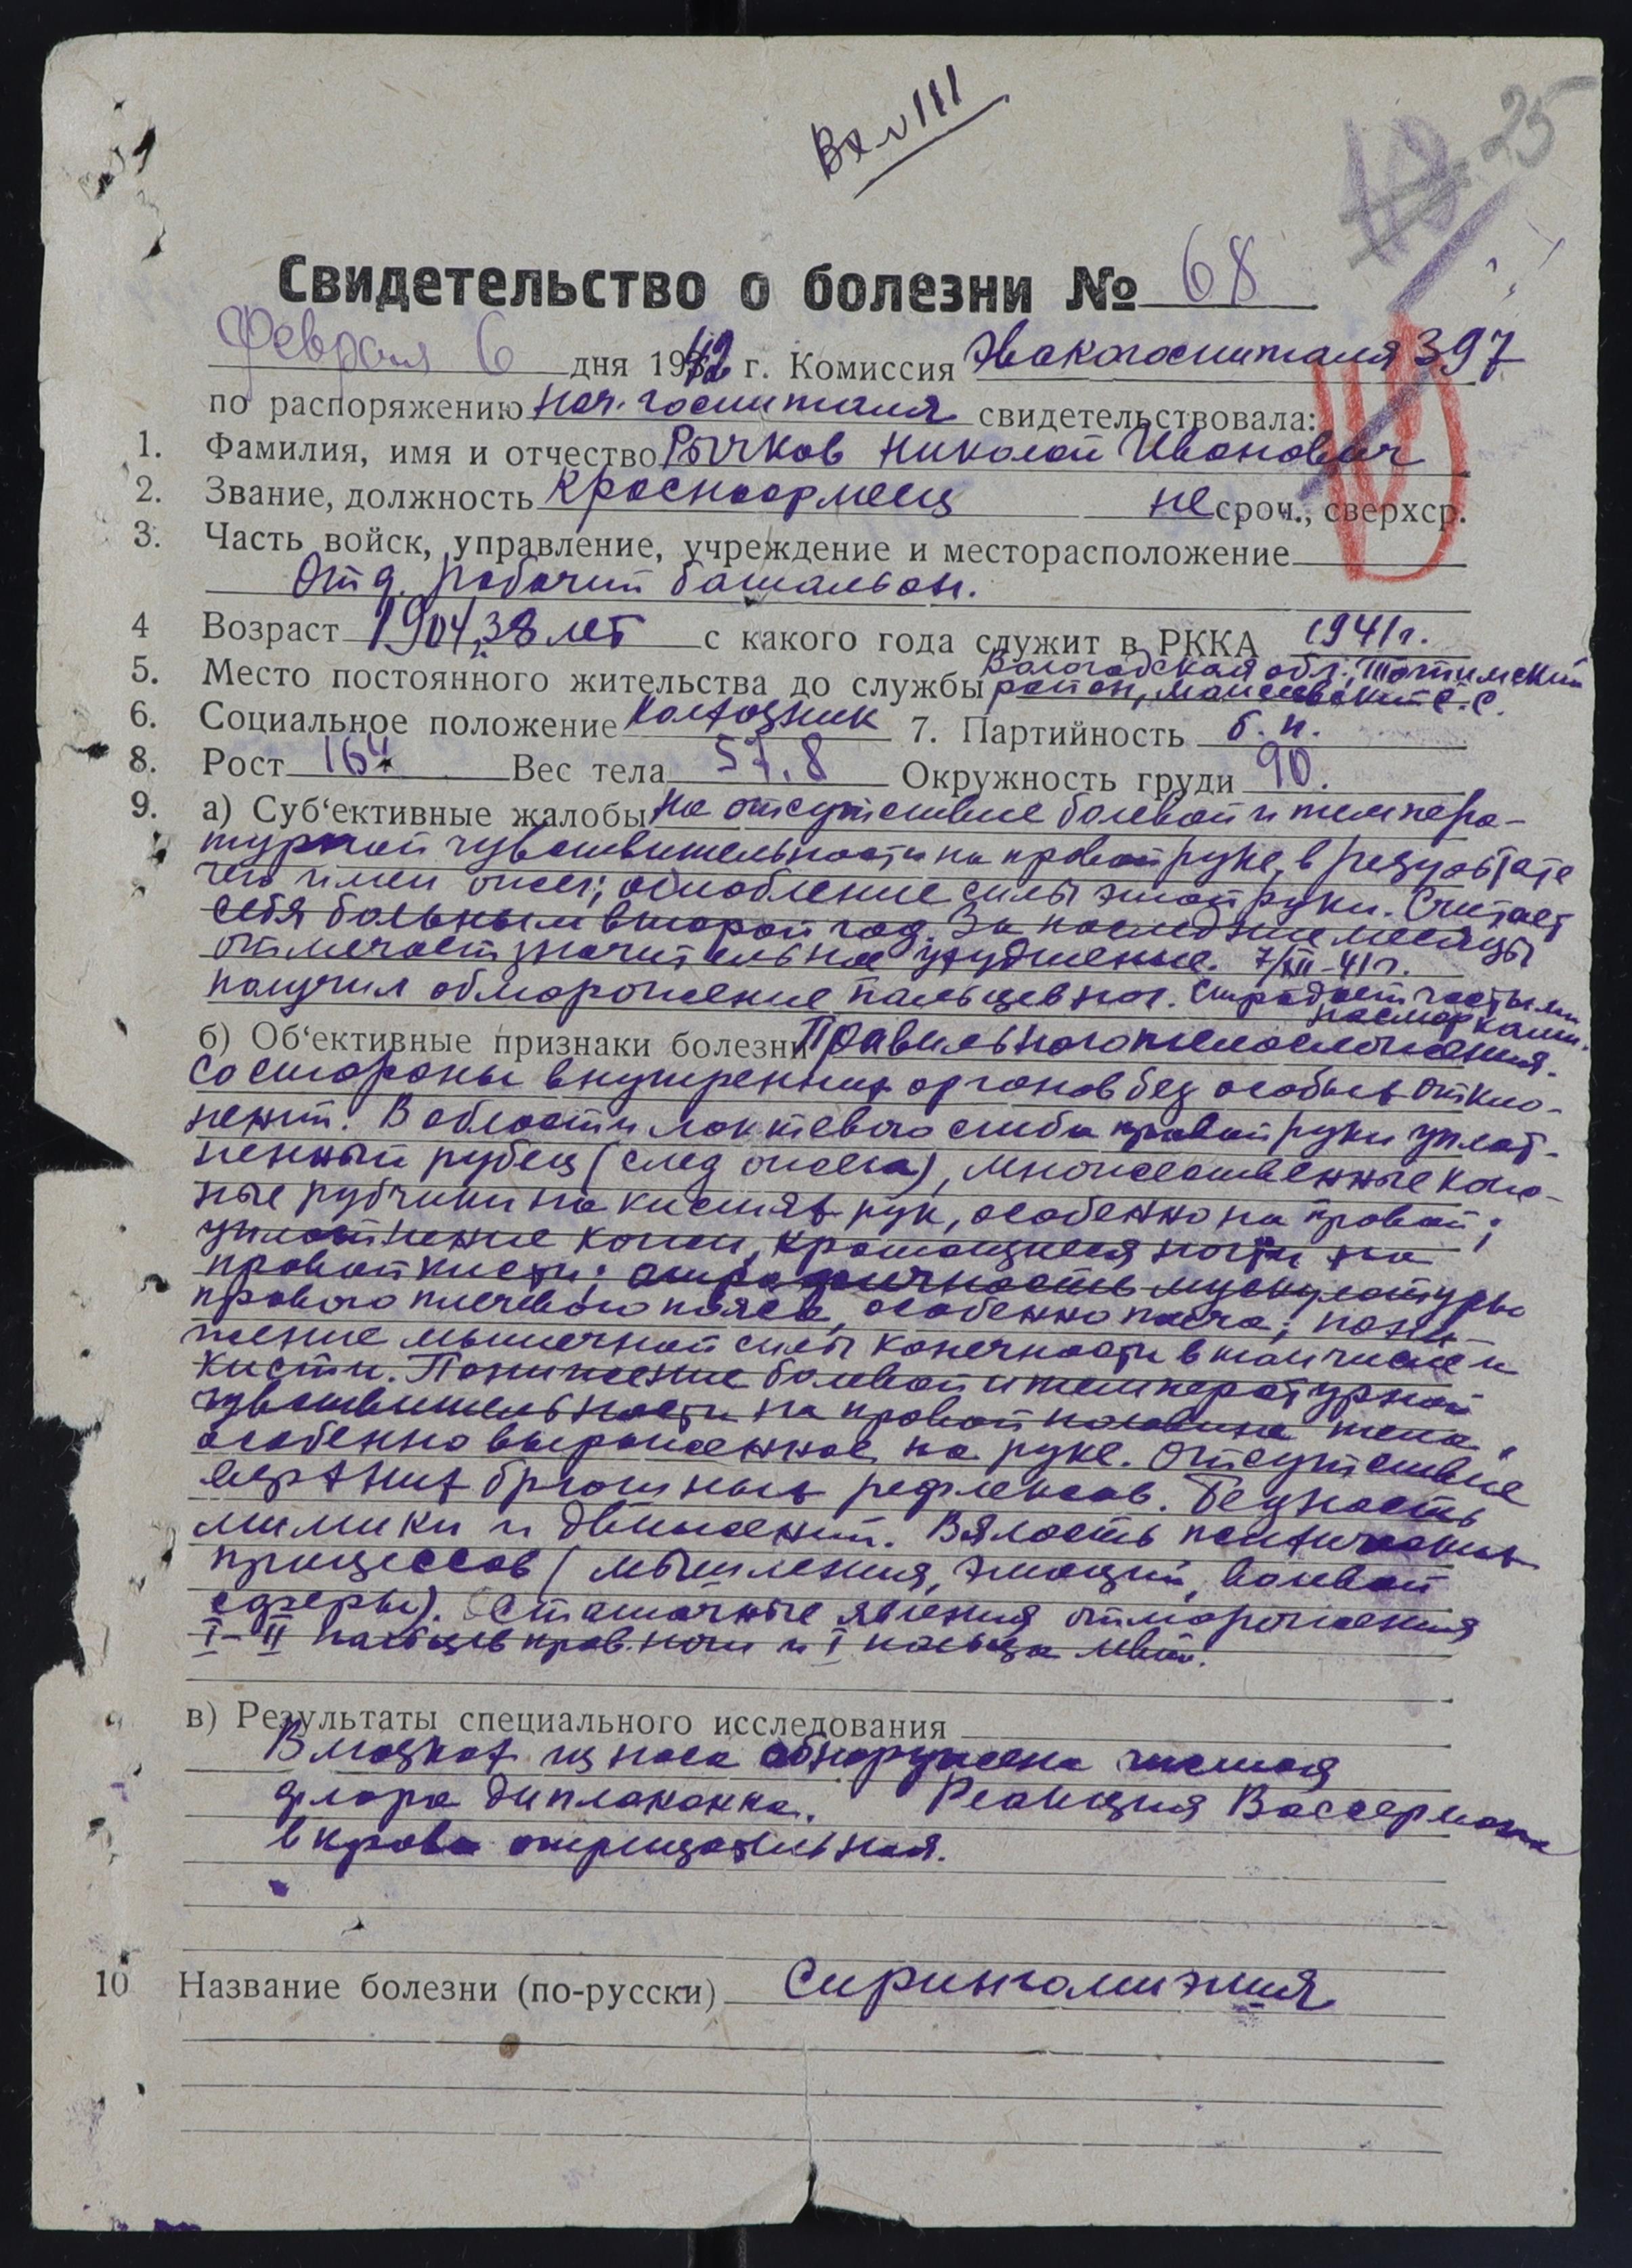 Вх № 111
25
Свидетельство о болезни № 68
Февраля 6 дня 1942 г. Комиссия Эвакогоспиталя 397
по распоряжению нач. госпиталя свидетельствовала:
1. Фамилия, имя и отчество Рычков Николай Иванович
2. Звание, должность Красноармеец не сроч., сверхср.
3. Часть войск, управление, учреждение и месторасположение
Отд. рабочий батальон.
4 Возраст 1904, 38 лет с какого года служит в РККА 1941 г.
Вологодская обл., Тотемский
5. Место постоянного жительства до службы район, С.С.
6. Социальное положение Колхозник 7. Партийность б. п.
8. Рост 164 Вес тела 57,8 Окружность груди 90.
9. а) Суб‘ективные жалобы На отсутствие болевой и темпера-
турной чувствительности на правой руке, в результате
чего имел ожог; ослабление силы этой руки. Считает
себя больным второй год. За последние месяцы
отмечает значительное ухудшение. 7/XII-41 г.
получил обморожение пальцев ног. Страдает частыми
насморками.
б) Об‘ективные признаки болезни Правильного телосложения.
Со стороны внутренних органов без особых откло-
нений. В области локтевого сгиба правой руки уплот-
ненный рубец (след ожога), множественные кож-
ные рубчики на кистях рук, особенно на правой;
уплотнение кожи, крошащиеся ногти на
правой кисти; мускулатуры
правого плечевого пояса, особенно плеча; пони-
жение мышечной силы конечности в том числе и
кисти. Понижение болевой и температурной
чувствительности на правой половине тела,
особенно выраженное на руке. Отсутствие
верхних брюшных рефлексов. Бедность
мимики и движений. Вялость психических
процессов (мышления, эмоций, волевой
сферы). Остаточные явления отморожения
I-II пальцев прав. ноги и I пальца левой.
в) Результаты специального исследования
В мазках из носа обнаружена чистая
флора диплококка. Реакция Вассермана
в крови отрицательная.
10 Название болезни (по-русски) Сирингомиэлия